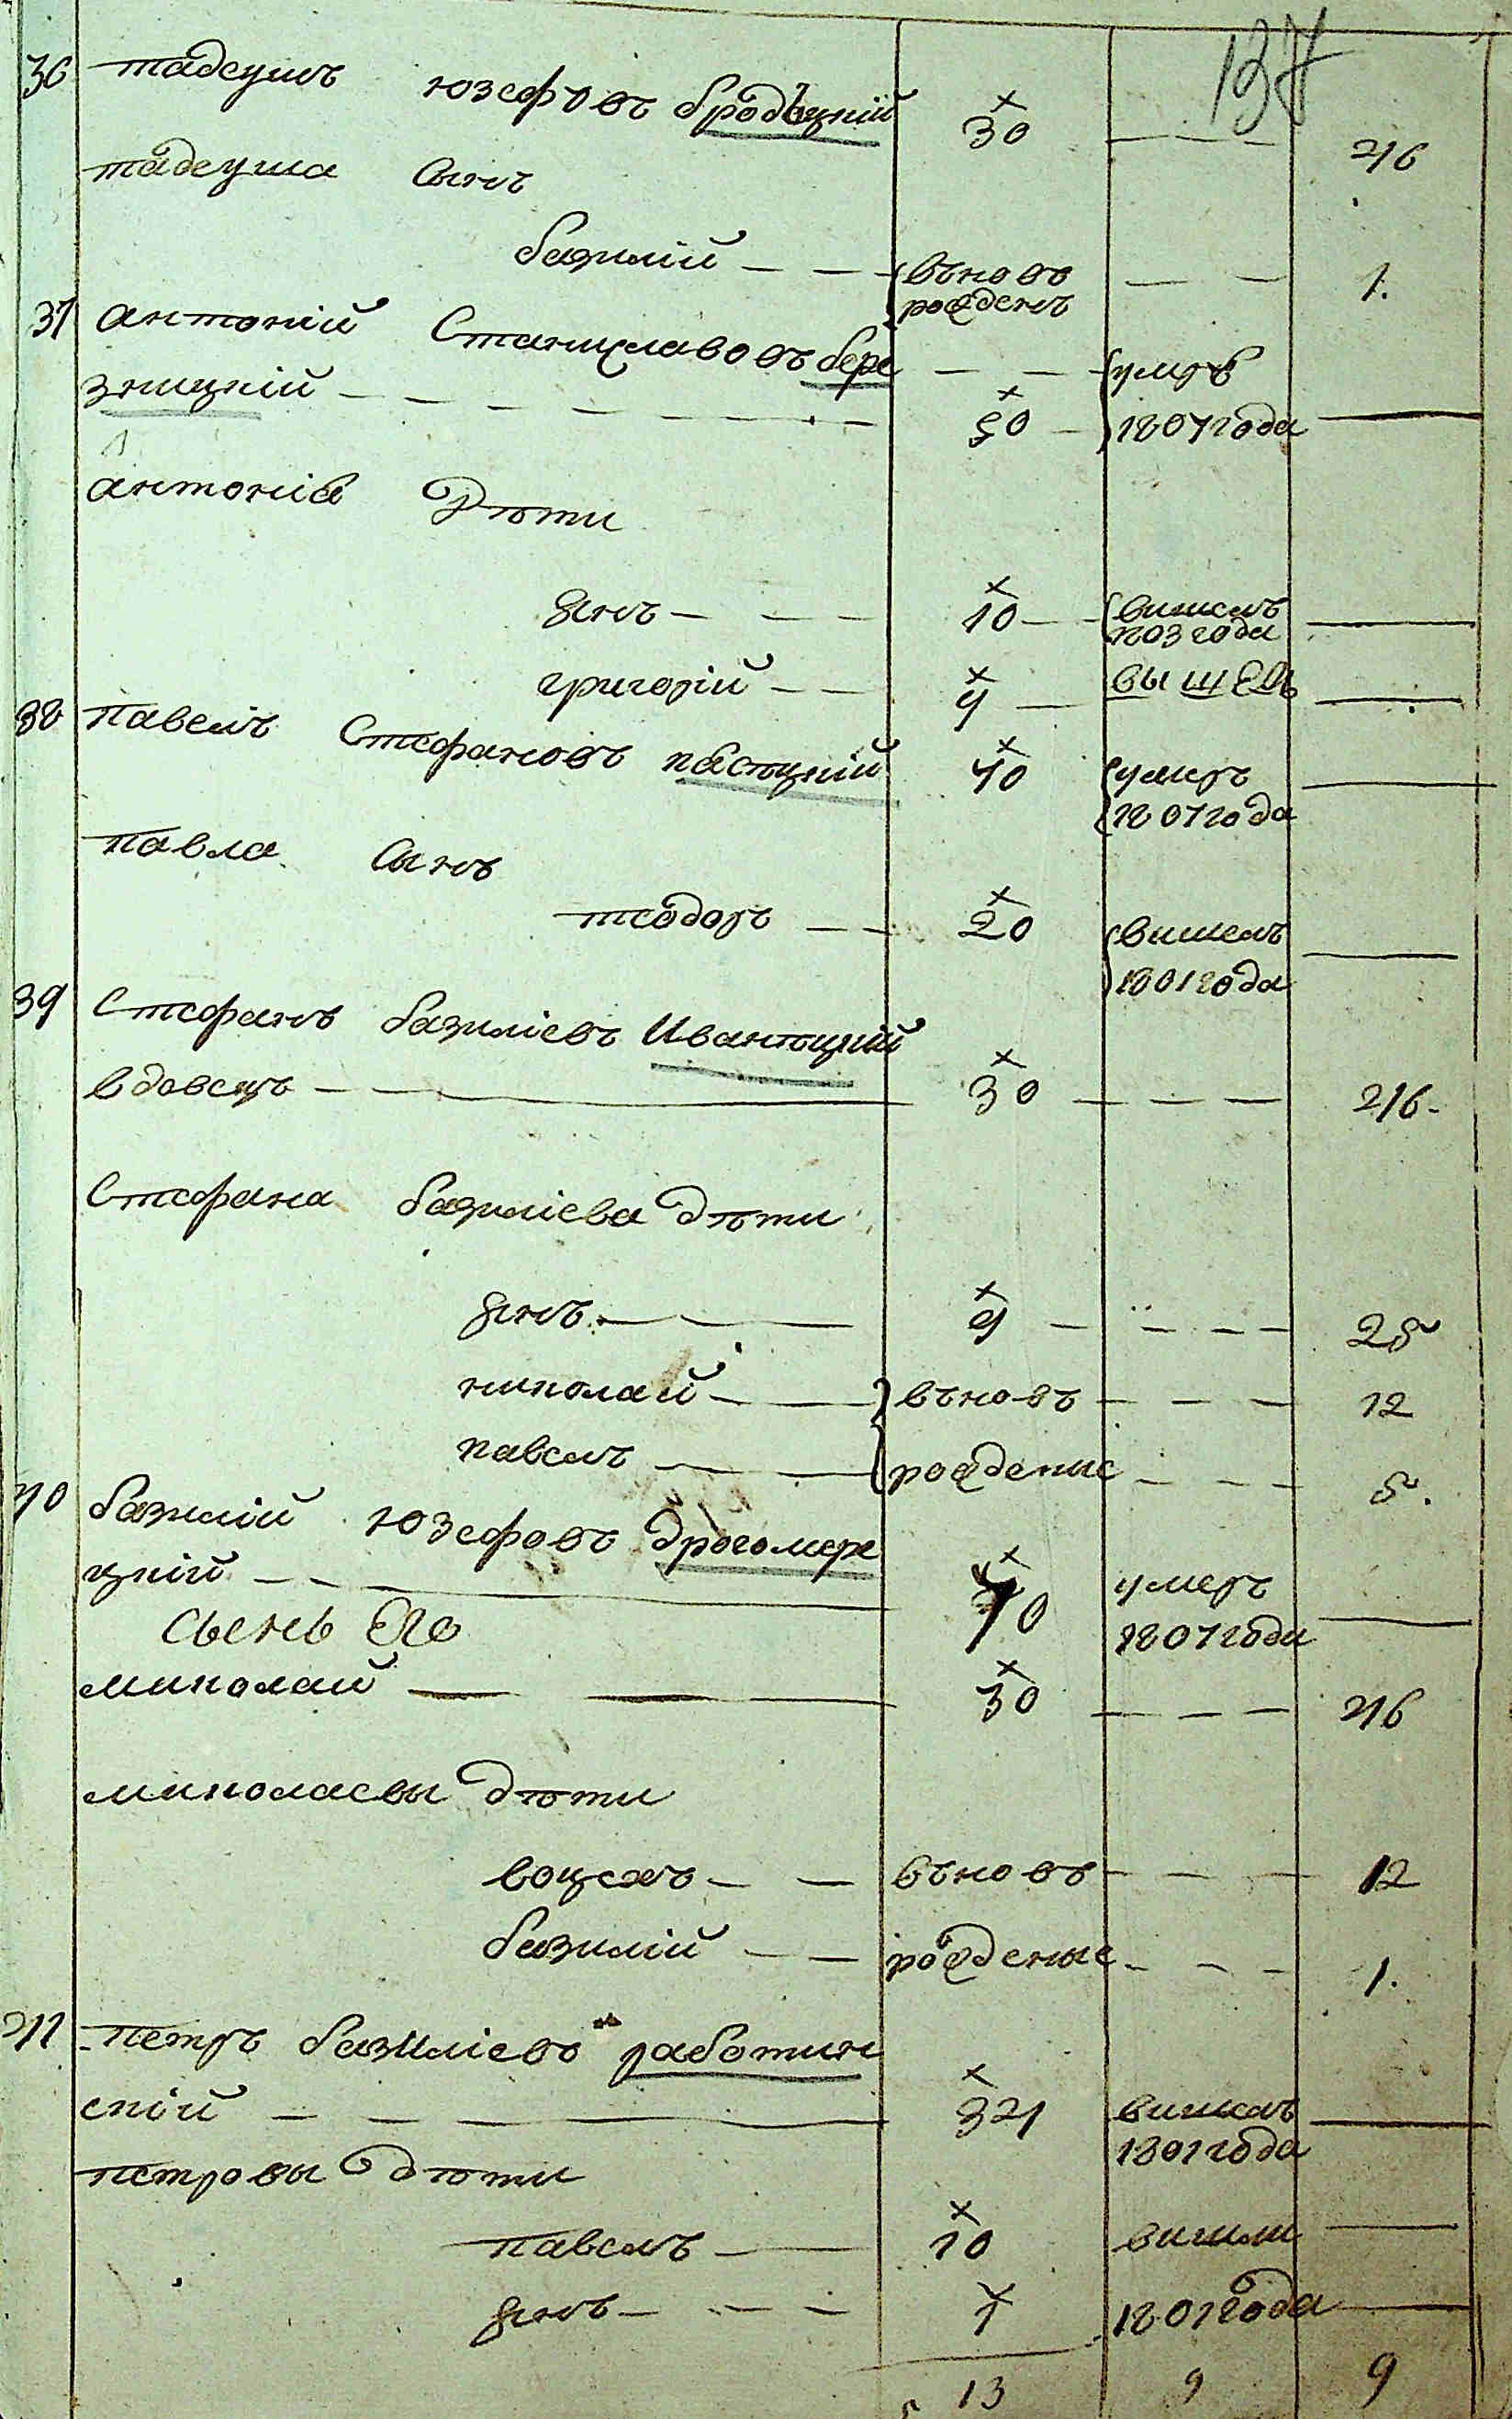 137
36 тадеушъ юзефовъ бродѣцкій 30 — — — 46
тадеуша сынъ
базилій — — въновъ рожденъ — — 1.
37 антоній Станиславовъ бере — — умръ
зницкій — — — — — — 50 — 1807 года —
антонія Дѣти
янъ — — — 10 — вишелъ 1803 года —
григорій — — 9 — вышедъ —
38 павелъ Стефановъ пасѣцкій 40 умеръ 1807 года —
павла сынъ
теодоръ — — 20 вишелъ 1801 года —
39 Стефанъ базиліевъ Иванѣцкій
вдовецъ — — 30 — — — 46.
Стефана базиліева дѣти
янъ — — — 9 — — — — 25
николай — — въновъ — — — 12
павелъ — — рожденые — — — 5.
40 базилій юзефовъ дрогомере
цкій — — — 70 умеръ 1807 года —
сынъ Его
миколай — — — 30 — — — 46
миколаевы дѣти
воцехъ — — въновъ — — — 12
базилій — — рожденые — — — 1.
41 петръ базиліевъ работин
скій — — — — — 34 вишелъ 1801 года —
петровы дѣти
павелъ — — 10 вишли —
янъ — — — — 7 1801 года —
13 9 9